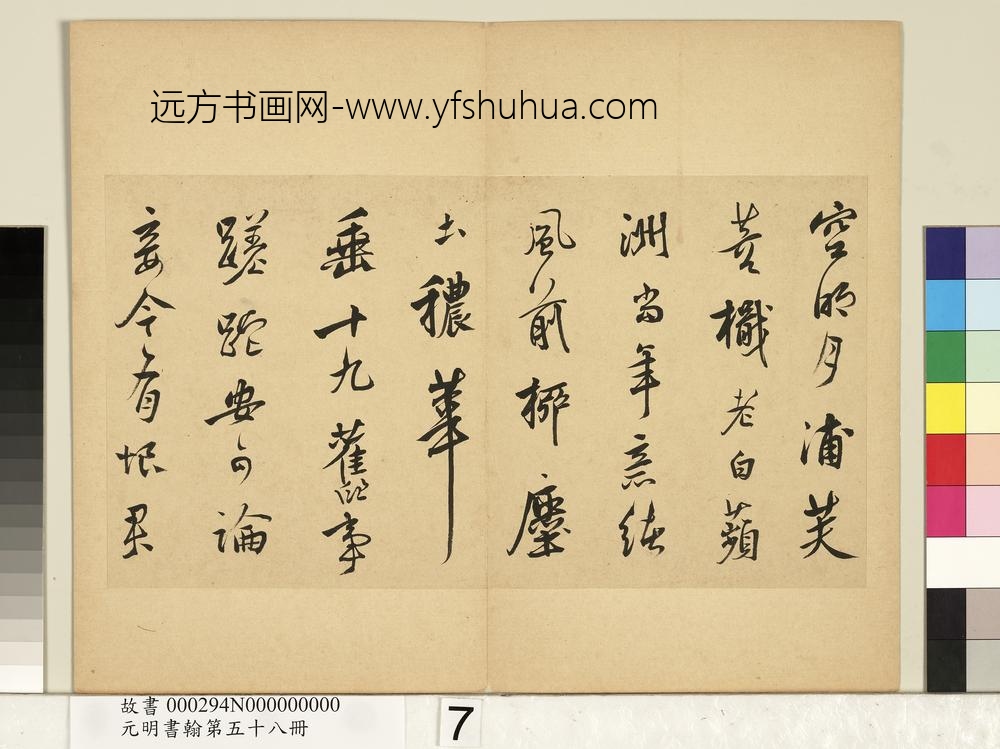 远方书画网-www.yfshuhua.com
空明月浦芙
蓉檝老白蘋
洲當年意綠
風前柳塵
土穠華
垂十九舊事
蹉跎安可論
妾今有恨君
故書 000294N000000000
元明書翰第五十八冊
7